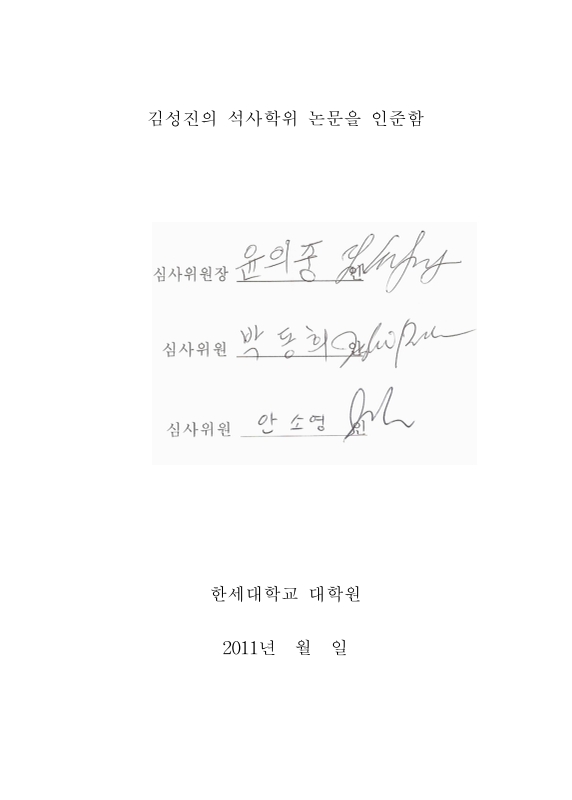 김성진의 석사학위 논문을 인준함
심사위원장 윤의중 인
심사위원 박동희 인
심사위원 안소영 인
한세대학교 대학원
2011년 월 일